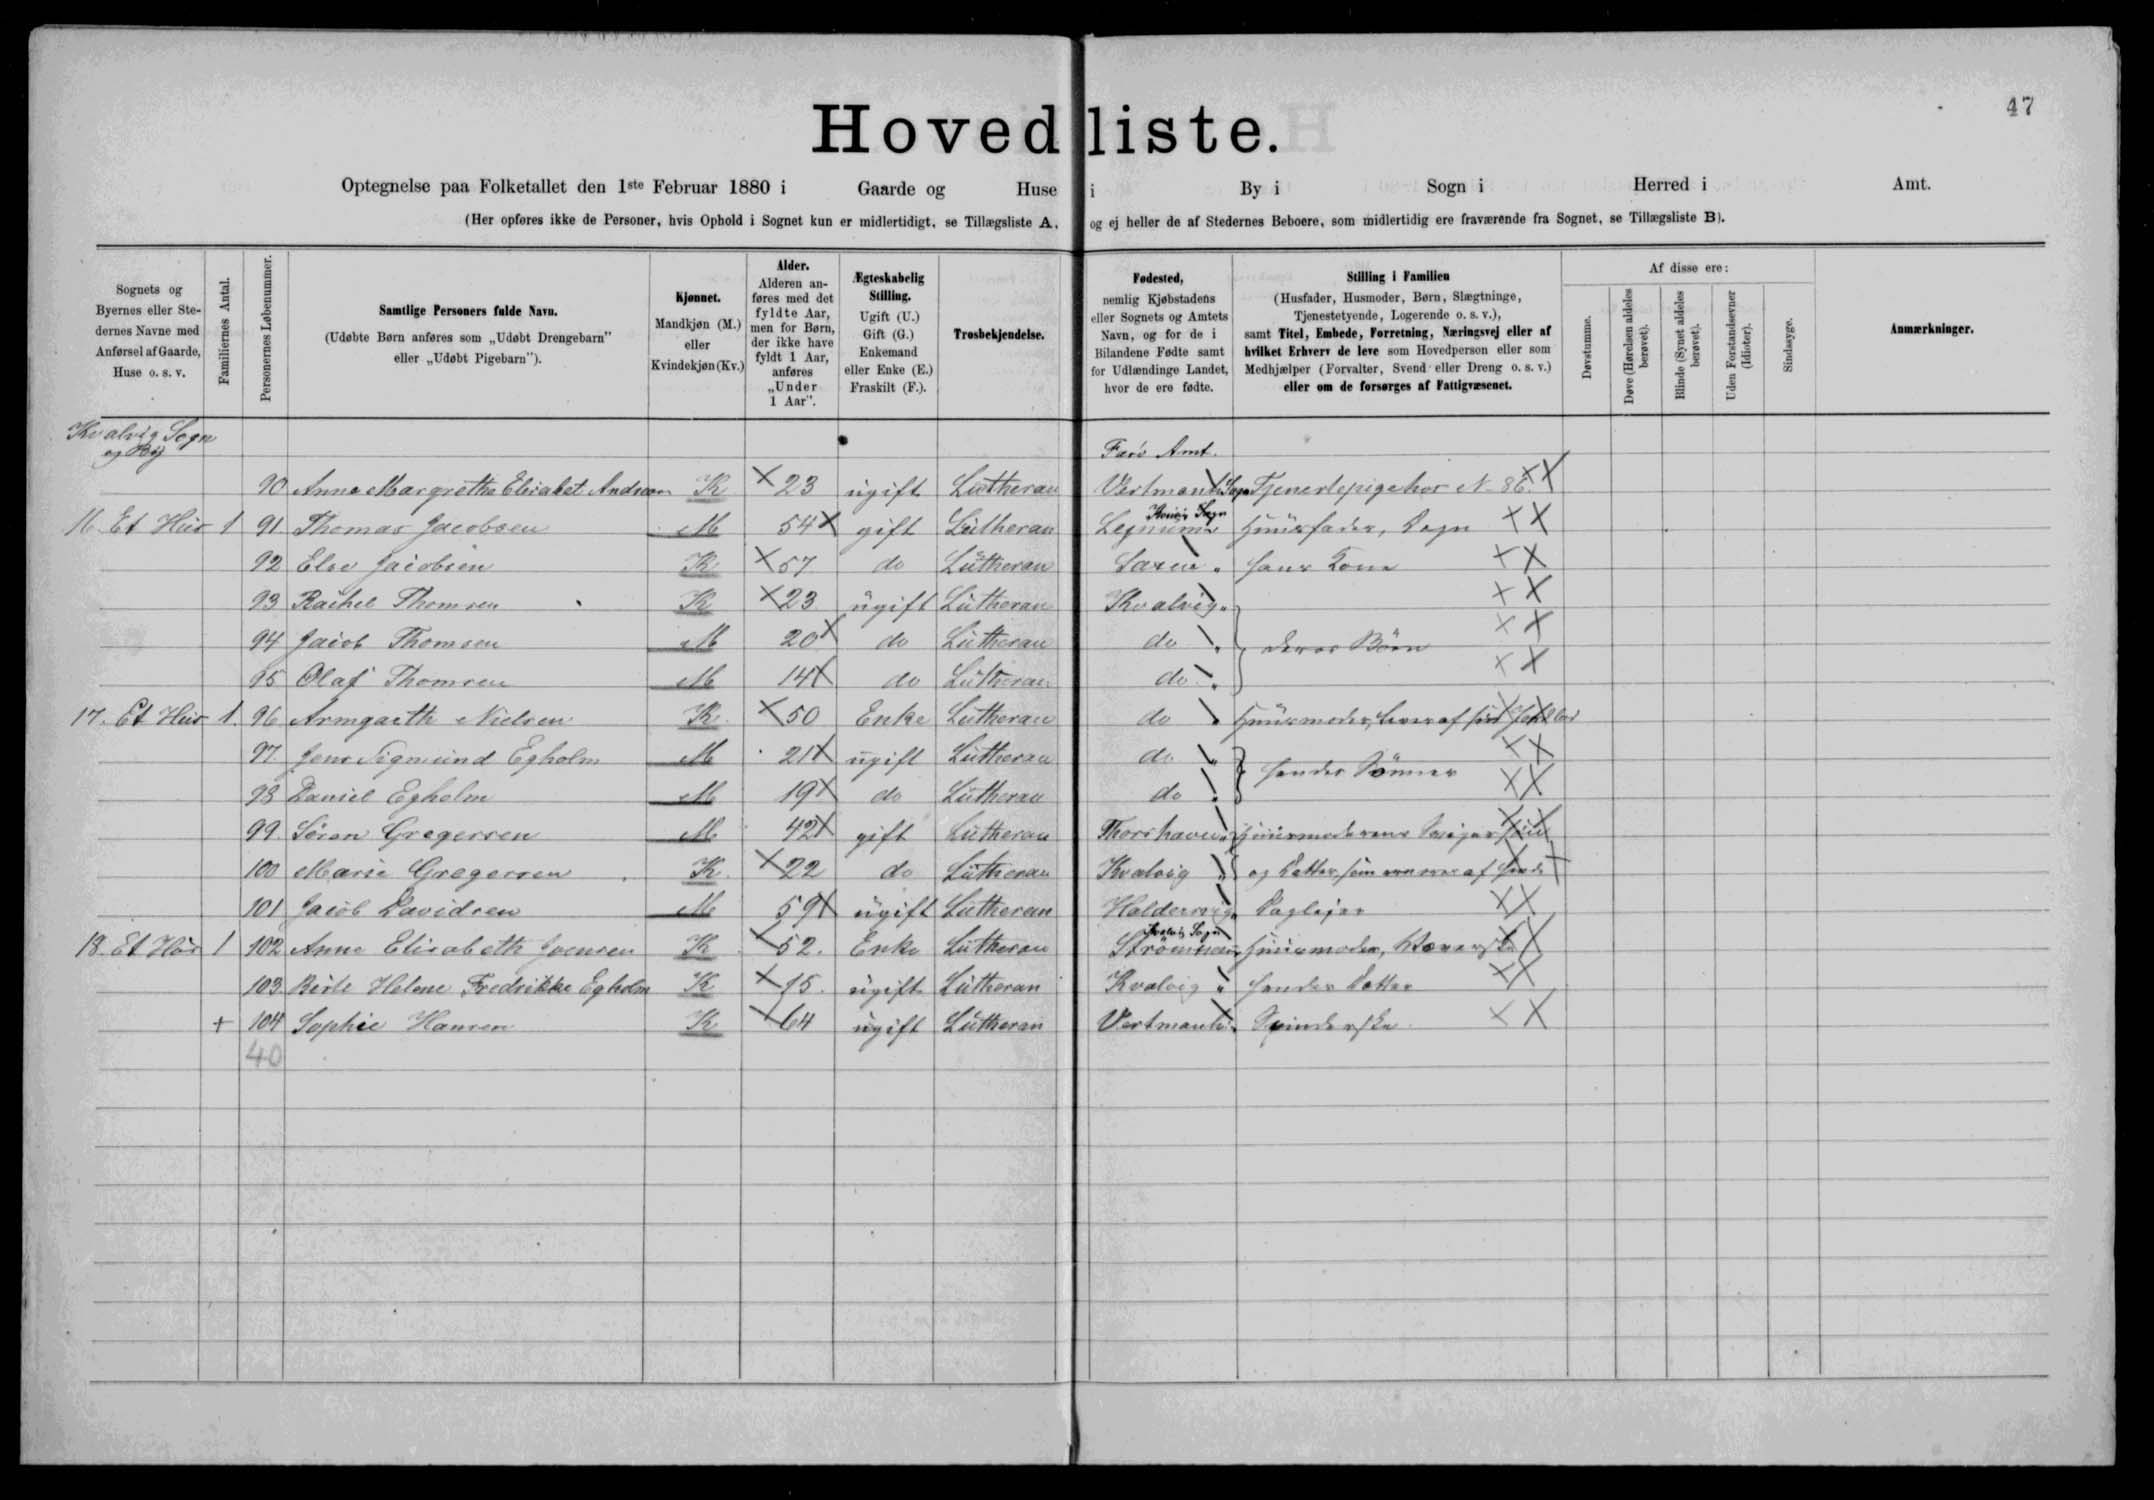 47
Hovedliste.
Optegnelse paa Folketallet den 1ste Februar 1880 i Gaarde og Huse i By i Sogn i Herred i Amt.
(Her opføres ikke de Personer, hvis Ophold i Sognet kun er midlertidigt, se Tillægsliste A, og ej heller de af Stedernes Beboere, som midlertidig ere fraværende fra Sognet, se Tillægsliste B).
Sognets og Byernes eller Stedernes Navne med Anførsel af Gaarde, Huse o. s. v.
Familiernes Antal.
Personernes Løbenummer.
Samtlige Personers fulde Navn.
(Udøbte Børn anføres som „Udøbt Drengebarn" eller „Udøbt Pigebarn").
Kjønnet.
Mandkjøn (M.) eller Kvindekjøn (Kv.)
Alder.
Alderen anføres med det fyldte Aar, men for Børn, der ikke have fyldt 1 Aar, anføres „Under 1 Aar".
Ægteskabelig Stilling.
Ugift (U.) Gift (G.) Enkemand eller Enke (E.) Fraskilt (F.).
Trosbekjendelse.
Fødested,
nemlig Kjøbstadens eller Sognets og Amtets Navn, og for de i Bilandene Fødte samt for Udlændinge Landet, hvor de ere fødte.
Stilling i Familien
(Husfader, Husmoder, Børn, Slægtninge, Tjenestetyende, Logerende o. s. v.),
samt Titel, Embede, Forretning, Næringsvej eller af hvilket Erhverv de leve som Hovedperson eller som Medhjælper (Forvalter, Svend eller Dreng o. s. v.) eller om de forsørges af Fattigvæsenet.
Af disse ere:
Døvstumme.
Døve (Hørelsen aldeles berøvet).
Blinde (Synet aldeles berøvet).
Uden Forstandsevner (Idioter).
Sindssyge.
Anmærkninger.
Kvalvig Sogn
og By
Farö Amt.
90 Anne Margrethe Elisabet Andreasen K 23 ugift Lutheran Vestmanh Sogn Tjenestepige hos N 86
16. Et Hus 1 91 Thomas Jacobsen M 54 gift Lutheran Kvivig Sogn Husfader, Degn
92 Else Jacobsen K 57 do Lutheran hans Kone
93 Rachel Thomsen K 23 ugift Lutheran Kvalvig
94 Jacob Thomsen M 20 do Lutheran do deres Börn
95 Olaf Thomsen M 14 do Lutheran do
17. Et Hus 1. 96 Armgarth Nielsen K 50 Enke Lutheran do Huusmoder, lever af sin Jordlod
97. Jens Sigmund Egholm M 21 ugift Lutheran do
98 Daniel Egholm M 19 do Lutheran do hendes Sönner
99. Sören Gregersen M 42 gift Lutheran Thorshavn Huusmoderens Svigersön
100 Marie Gregersen K 22 do Lutheran Kvalvig og Datter, som
101 Jacob Davidsen M 59 ugift Lutheran Haldersvig Daglejer
18. Et Hus 1 102 Anne Elisabeth Joensen K 52. Enke Lutheran Strömnæs Huusmoder, Væverske
103. Birte Helene Fredrikke Egholm K 15. ugift Lutheran Kvalvig hendes Datter
+ 104 Sophie Hansen K 64 ugift Lutheran Vestmanh. Spinderske
40